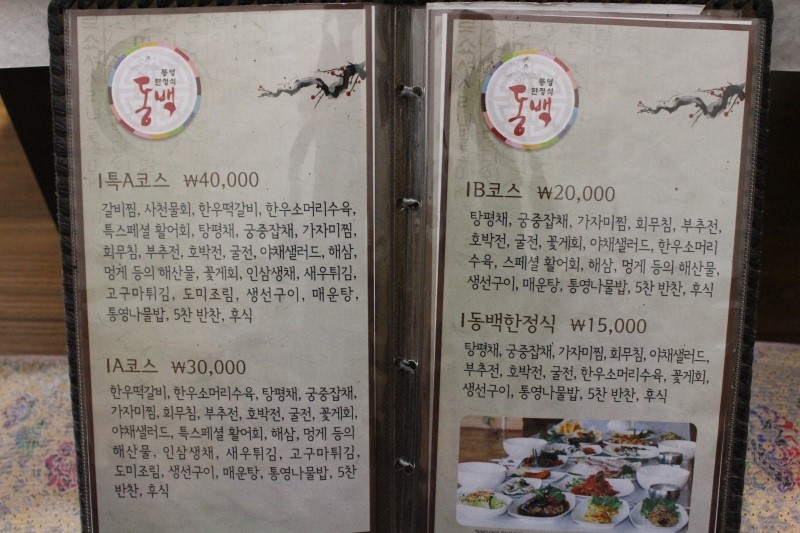 통영
한정식
동백
특A코스 ₩40,000
갈비찜, 사천물회, 한우떡갈비, 한우소머리수육,
특스페셜 활어회, 탕평채, 궁중잡채, 가자미찜,
회무침, 부추전, 호박전, 굴전, 야채샐러드, 해삼,
멍게 등의 해산물, 꽃게회, 인삼생채, 새우튀김,
고구마튀김, 도미조림, 생선구이, 매운탕,
통영나물밥, 5찬 반찬, 후식
A코스 ₩30,000
한우떡갈비, 한우소머리수육, 탕평채, 궁중잡채,
가자미찜, 회무침, 부추전, 호박전, 굴전, 꽃게회,
야채샐러드, 특스페셜 활어회, 해삼, 멍게 등의
해산물, 인삼생채, 새우튀김, 고구마튀김,
도미조림, 생선구이, 매운탕, 통영나물밥, 5찬
반찬, 후식
통영
한정식
동백
B코스 ₩20,000
탕평채, 궁중잡채, 가자미찜, 회무침, 부추전,
호박전, 굴전, 꽃게회, 야채샐러드, 한우소머리
수육, 스페셜 활어회, 해삼, 멍게 등의 해산물,
생선구이, 매운탕, 통영나물밥, 5찬 반찬, 후식
동백한정식 ₩15,000
탕평채, 궁중잡채, 가자미찜, 회무침, 야채샐러드,
부추전, 호박전, 굴전, 한우소머리수육, 꽃게회,
생선구이, 통영나물밥, 5찬 반찬, 후식